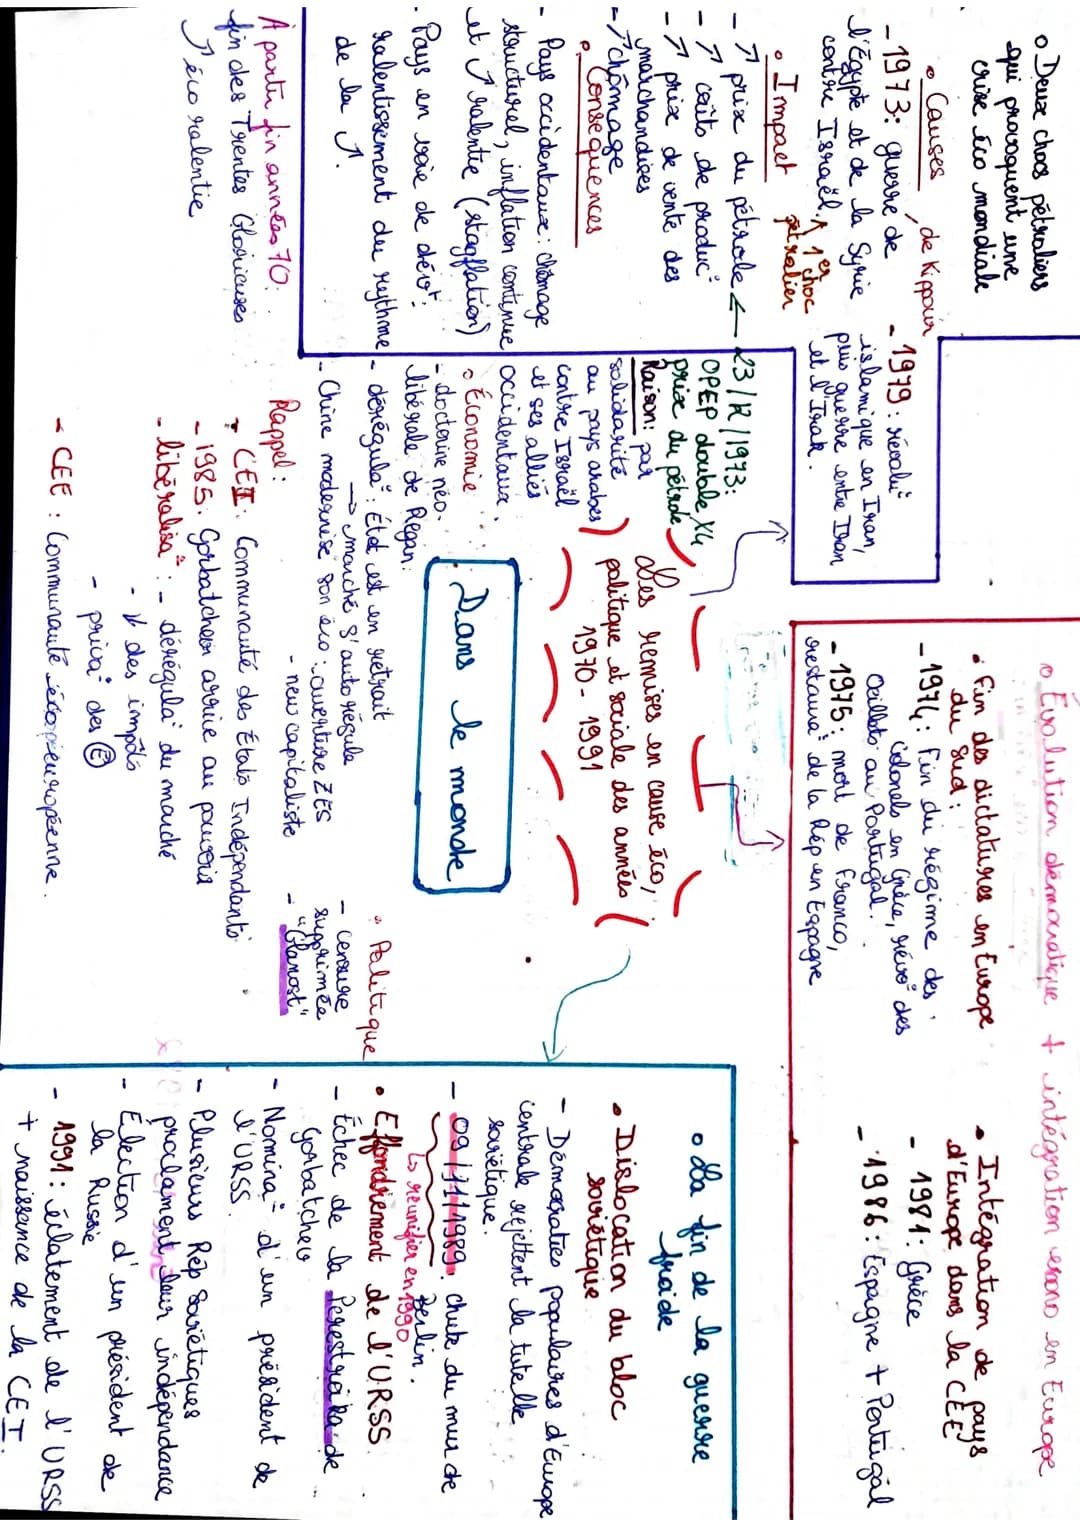 ◦ Deux chocs pétroliers
qui provoquent une
crise éco mondiale
• Causes
- 1973 : guerre de
de Kippour
l'Égypte et de la Syrie
contre Israël.
↑ 1er choc
pétrolier
- 1979 : révolu°
islamique en Iran,
puis guerre entre Iran
et l'Irak.
• Impact
- ↗ prix du pétrole ←
- ↗ coûts de produc°
- ↗ prix de vente des
marchandises
- ↗ chômage
• Conséquences
- Pays occidentaux : chômage
structurel, inflation continue
et ↗ ralentie (stagflation)
- Pays en voie de dévt :
ralentissement du rythme
de la ↗.
À partir fin années 70 :
fin des Trentes Glorieuses
↗ éco ralentie
23/12/1973 :
OPEP double X4
prix du pétrole
Raison : par
solidarité
au pays arabes
contre Israël
et ses alliés
occidentaux.
Les remises en cause éco,
politique et sociale des années
1970 - 1991
Dans le monde
◦ Économie
- doctrine néo-
libérale de Regan :
- dérégula° : État est en retrait
→ marché s'auto régule
- Chine modernise son éco : ouverture ZES
- new capitaliste
◦ Politique
- censure
supprimée
- "Glanost"
Rappel :
- CEI : Communauté des États Indépendants
- 1985 : Gorbatchev arrive au pouvoir
- libéralisa° : - dérégula° du marché
- ↓ des impôts
- priva° des (E)
- CEE : Communauté européenne.
◦ Évolution démocratique + intégration en Europe
• Fin des dictatures en Europe
du Sud :
- 1974 : Fin du régime des
colonels en Grèce, révo° des
Œillets au Portugal.
- 1975 : mort de Franco,
restaura° de la Rép en Espagne
• Intégration de pays
d'Europe dans la CEE
- 1981 : Grèce
- 1986 : Espagne + Portugal
◦ La fin de la guerre
froide
• Dislocation du bloc
soviétique
- Démocraties populaires d'Europe
centrale rejettent la tutelle
soviétique.
- 09/11/1989 : chute du mur de
Berlin.
↳ réunifier en 1990
• Effondrement de l'URSS
- Échec de la Perestroïka de
Gorbatchev
- Nomina° d'un président de
l'URSS.
- Plusieurs Rép Soviétiques
proclament leur indépendance
- Élection d'un président de
la Russie
- 1991 : éclatement de l'URSS
+ naissance de la CEI.